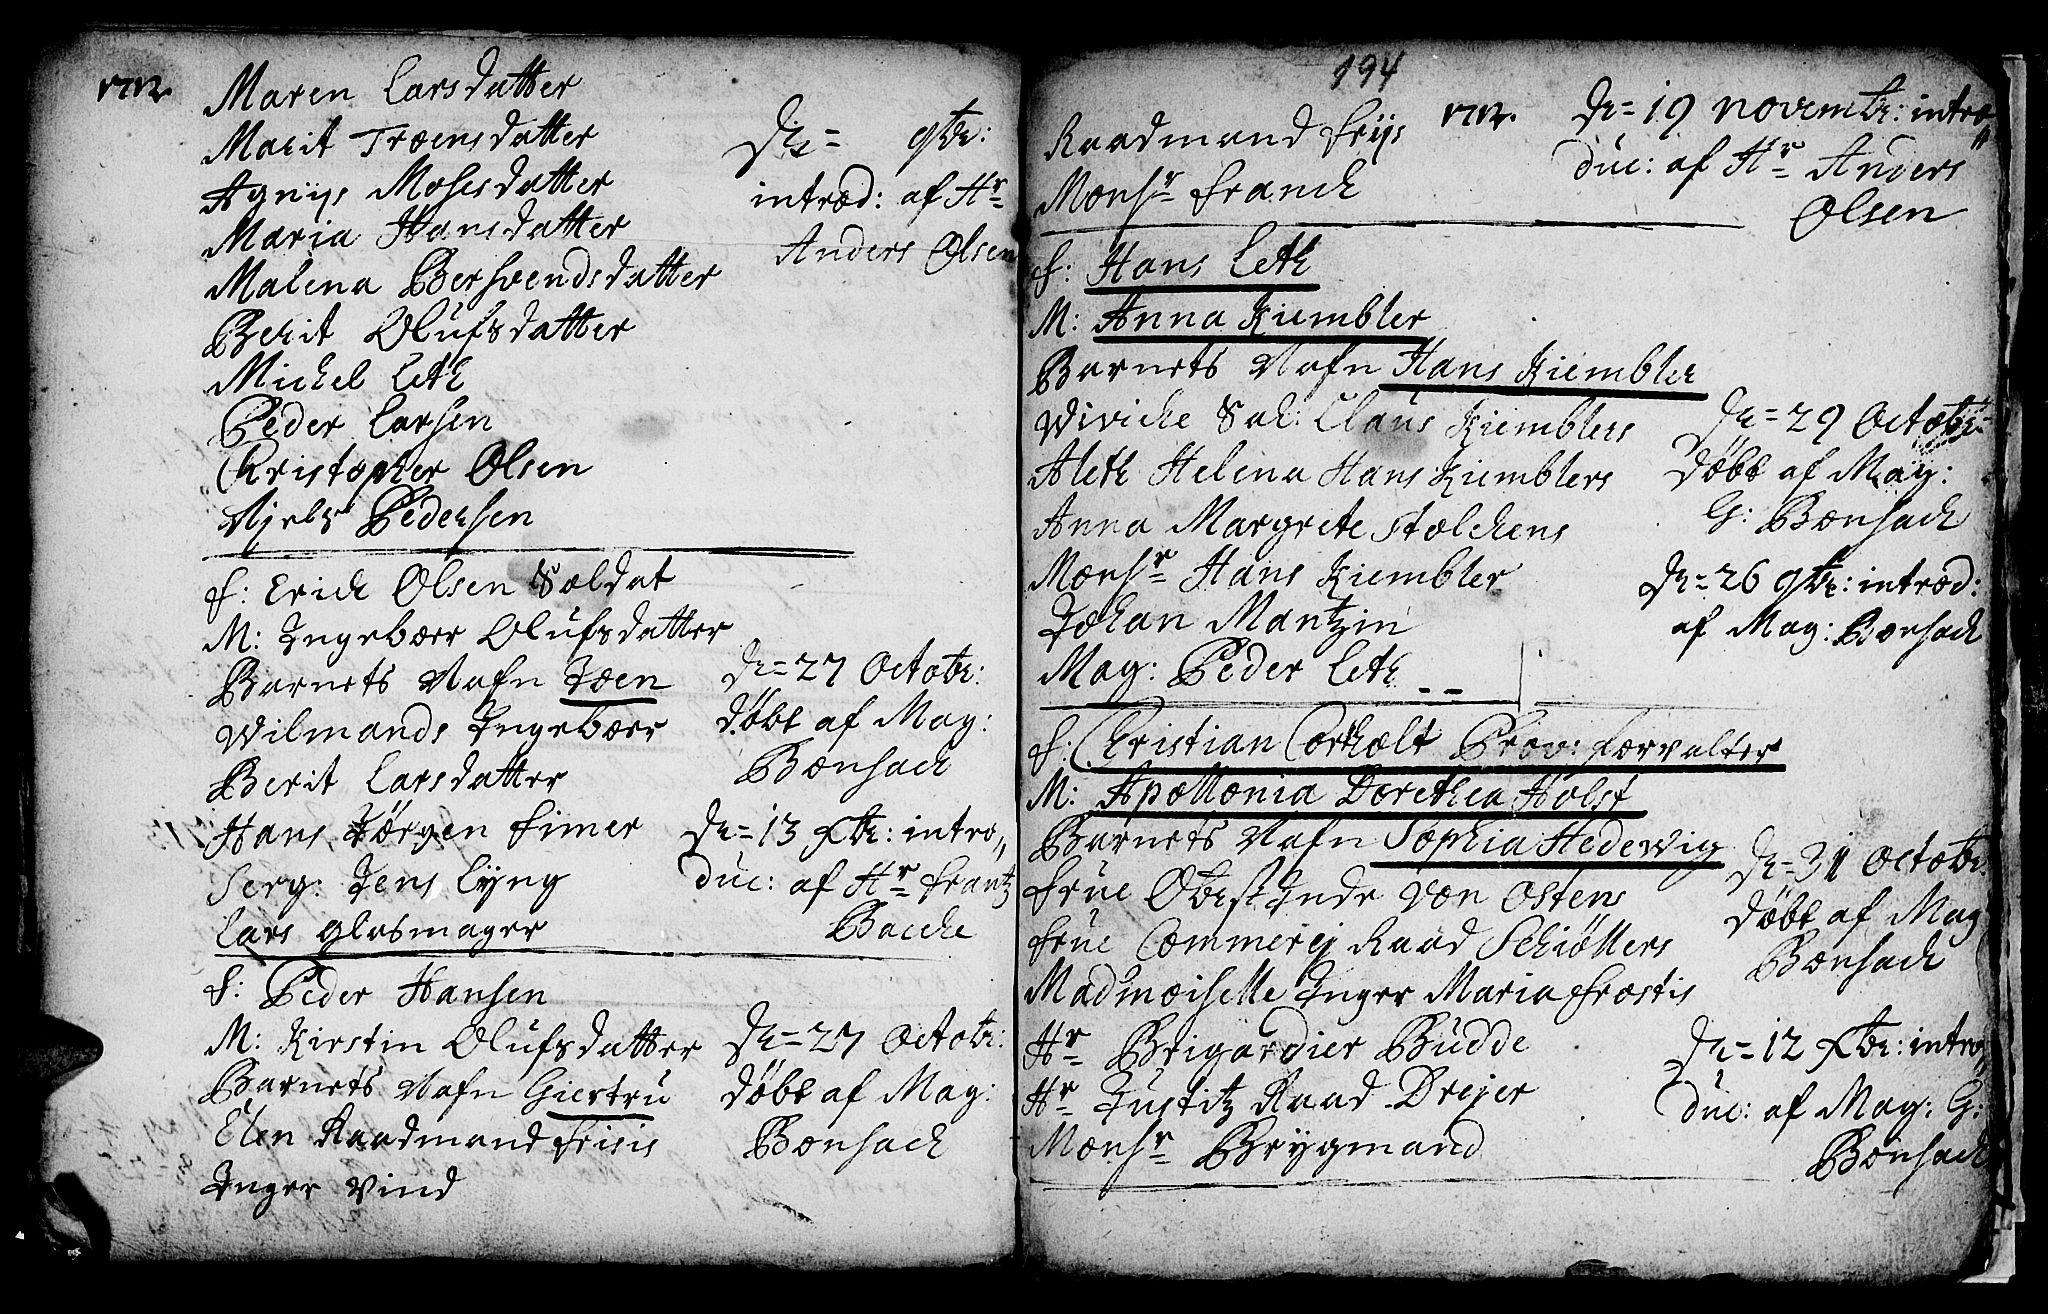 1712.
Maren Larsdatter
Marit Troensdatter
Agnijs Mosesdatter
Maria Hansdatter
Malena Bersvendsdatter
Berit Olufsdatter
Michel Leth
Peder Larsen
Christopher Olsen
Njels Pedersen
D. = 9br:
introd: af Hr
Anders Olsen
F: Erich Olsen Soldat
M: Ingeborr Olufsdatter
Barnets Nafn Joen
Wilmands Ingeborr
Berit Larsdatter
Hans Jörgen Fimer
Serg: Jens Lyng
Lars glasmager
D. = 27 Octobr:
döbt af Mag:
Bonsach
D. = 13 Xbr: intro„
duc: af Hr Frantz
Bacche
F: Peder Hansen
M: Kirstin Olufsdatter
Barnets Nafn Giertru
Elen Raadmand Frisis
Inger Vind
D. = 27 Octobr:
döbt af Mag:
Bonsach
194
1712.
Raadmand Frijs
Monsr Franch
D. = 19 novembr: intro„
duc: af Hr Anders
Olsen
F: Hans Leth
M: Anna Kiembler
Barnets Nafn Hans Kiembler
Wiviche Sal: Claus Kiemblers
Aleth Helena Hans Kiemblers
Anna Margrete Stolchens
Monsr Hans Kiembler
Johan Mantzin
Mag: Peder Leth
D. = 29 Octobr:
döbt af Mag:
G: Bonsach
D. = 26 9br: introd:
af Mag: Bonsach
F: Christian Corholt Prov: Forvalter
M: Apollonia Dorethea Holst
Barnets Nafn Sophia Hedewig
Frue Obrstinde von Ostens
Frue Commercj Raad Schiöllers
Madmoiselle Inger Maria Frostis
Hr Brigardier Budde
Hr Justitz Raad Drejer
Monsr Brygmand
D. = 31 Octobr:
döbt af Mag
Bonsach
D. = 12 Xbr: intro„
duc: af Mag: G:
Bonsach